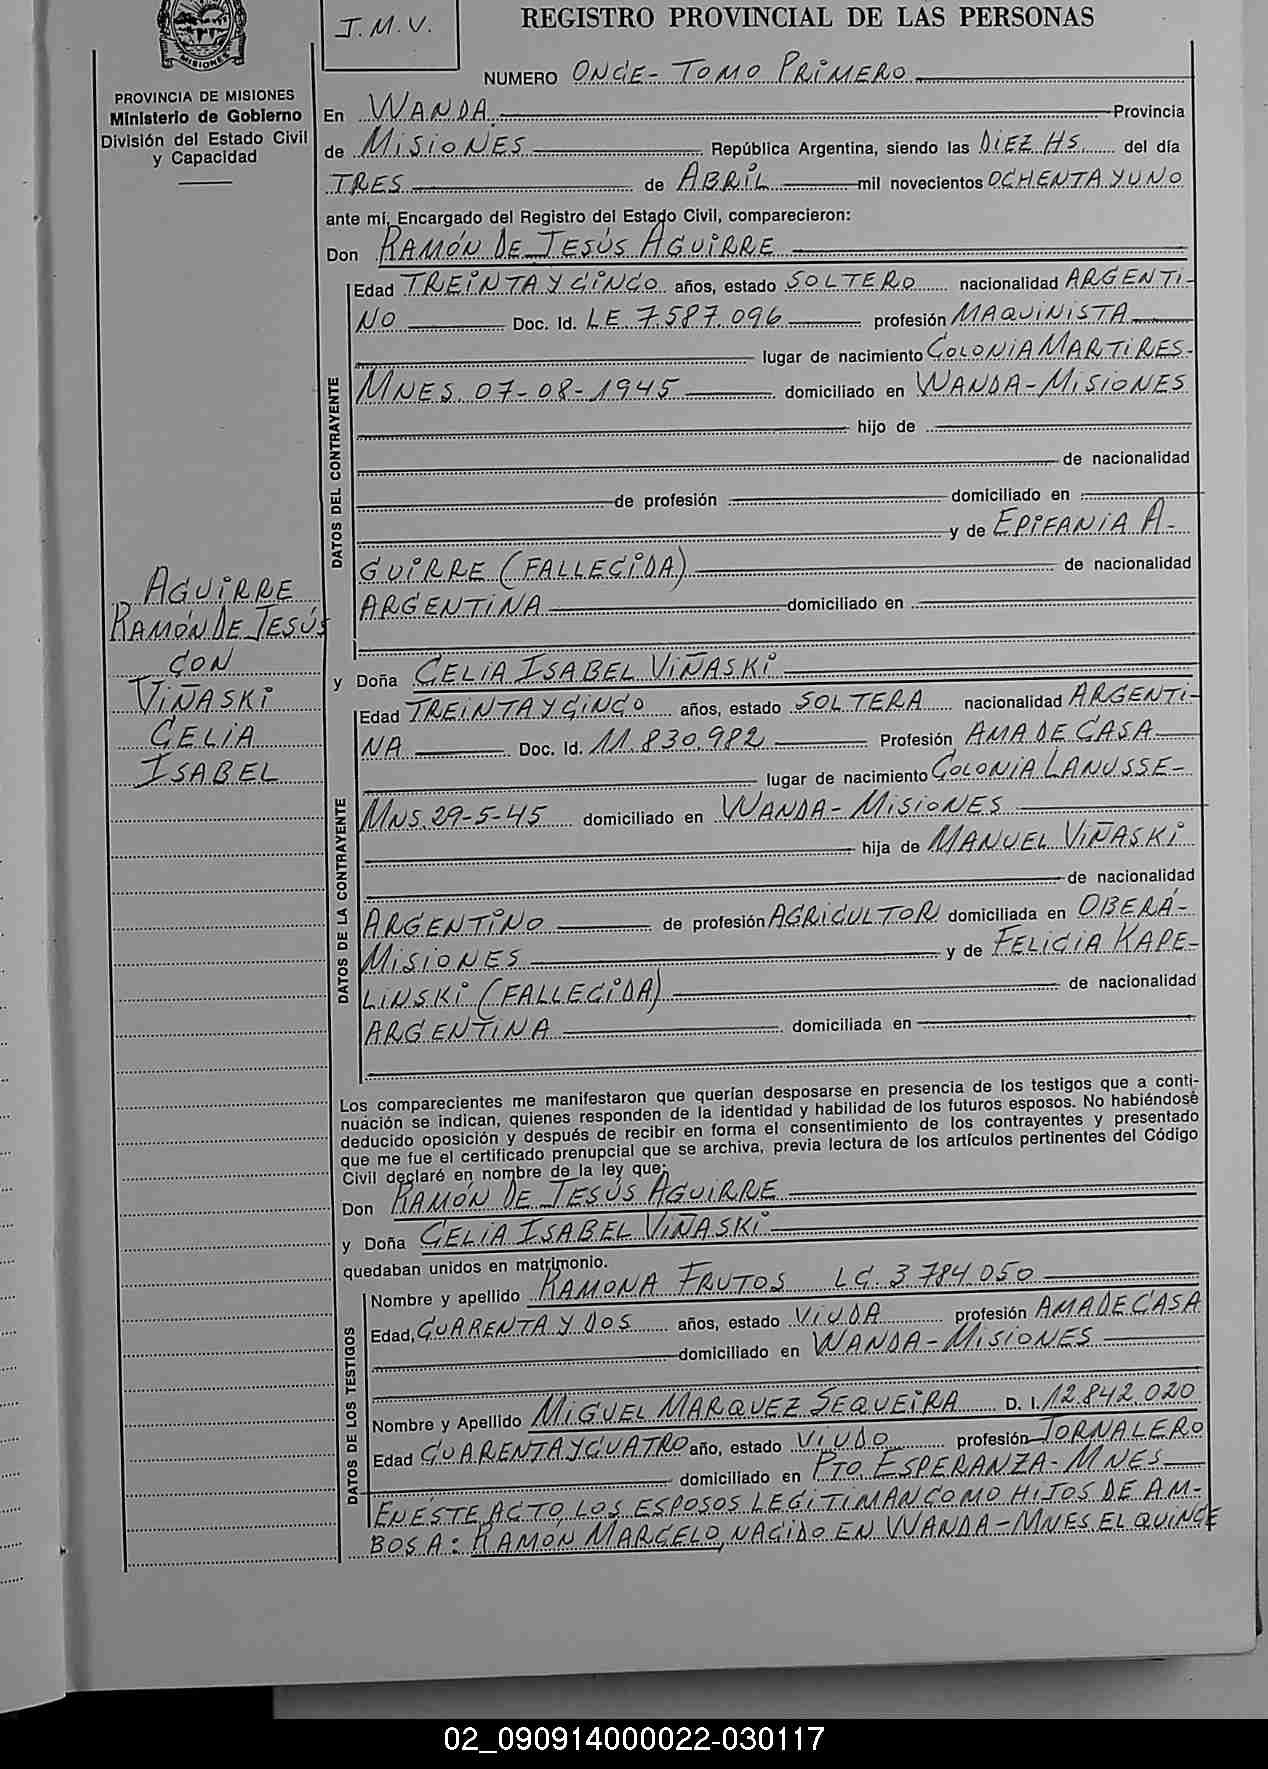 MISIONES
J.M.V.
REGISTRO PROVINCIAL DE LAS PERSONAS
NUMERO ONCE - TOMO PRIMERO
PROVINCIA DE MISIONES
Ministerio de Gobierno
División del Estado Civil
y Capacidad
En WANDA Provincia
de MISIONES República Argentina, siendo las DIEZ HS. del día
TRES de ABRIL mil novecientos OCHENTA Y UNO
ante mí, Encargado del Registro del Estado Civil, comparecieron:
Don RAMÓN DE JESÚS AGUIRRE
DATOS DEL CONTRAYENTE
Edad TREINTA Y CINCO años, estado SOLTERO nacionalidad ARGENTI-
NO Doc. Id. L.E. 7.587.096 profesión MAQUINISTA
lugar de nacimiento COLONIA MARTIRES-
MNES. 07-08-1945 domiciliado en WANDA-MISIONES
hijo de
de nacionalidad
de profesión domiciliado en
y de EPIFANIA A-
GUIRRE (FALLECIDA) de nacionalidad
ARGENTINA domiciliado en
AGUIRRE
RAMÓN DE JESÚS
CON
VIÑASKI
CELIA
ISABEL
y Doña CELIA ISABEL VIÑASKI
DATOS DE LA CONTRAYENTE
Edad TREINTA Y CINCO años, estado SOLTERA nacionalidad ARGENTI-
NA Doc. Id. 11.830.982 Profesión AMA DE CASA
lugar de nacimiento COLONIA LANUSSE-
MNS. 29-5-45 domiciliado en WANDA-MISIONES
hija de MANUEL VIÑASKI
de nacionalidad
ARGENTINO de profesión AGRICULTOR domiciliada en OBERÁ-
MISIONES y de FELICIA KAPE-
LINSKI (FALLECIDA) de nacionalidad
ARGENTINA domiciliada en
Los comparecientes me manifestaron que querían desposarse en presencia de los testigos que a conti-
nuación se indican, quienes responden de la identidad y habilidad de los futuros esposos. No habiéndose
deducido oposición y después de recibir en forma el consentimiento de los contrayentes y presentado
que me fue el certificado prenupcial que se archiva, previa lectura de los artículos pertinentes del Código
Civil declaré en nombre de la ley que:
Don RAMÓN DE JESÚS AGUIRRE
y Doña CELIA ISABEL VIÑASKI
quedaban unidos en matrimonio.
DATOS DE LOS TESTIGOS
Nombre y apellido RAMONA FRUTOS LC. 3784.050
Edad, CUARENTA Y DOS años, estado VIUDA profesión AMA DE CASA
domiciliado en WANDA-MISIONES
Nombre y Apellido MIGUEL MARQUEZ SEQUEIRA D. I. 12.842.020
Edad CUARENTA Y CUATRO año, estado VIUDO profesión JORNALERO
domiciliado en PTO. ESPERANZA-MNES
EN ÉSTE ACTO LOS ESPOSOS LEGITIMAN COMO HIJOS DE AM-
BOS A: RAMÓN MARCELO, NACIDO EN WANDA-MNES EL QUINCE
02_090914000022-030117